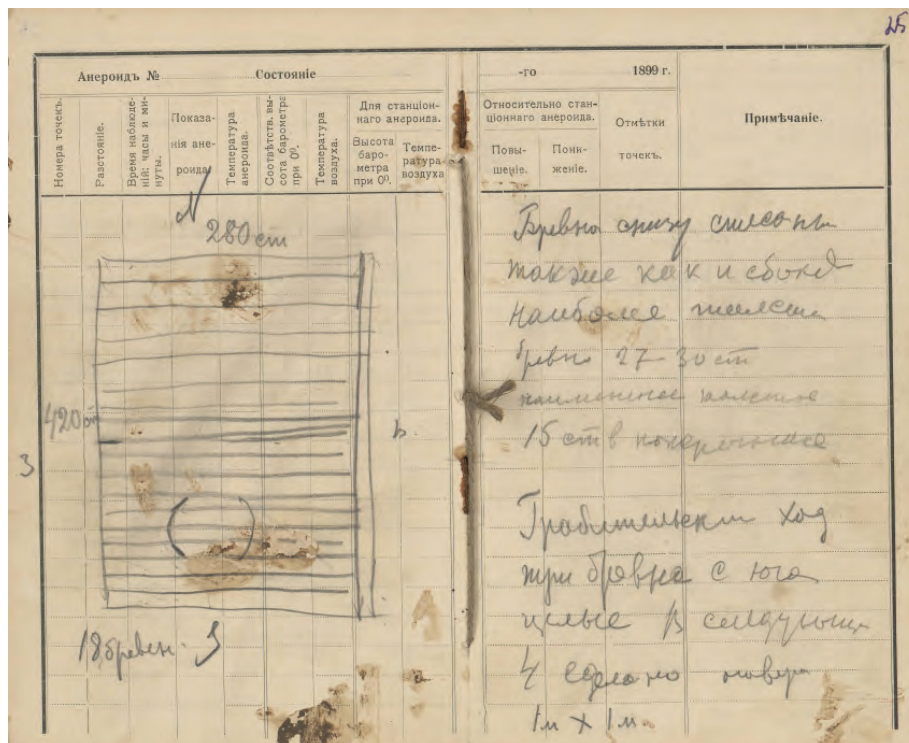 25
Анероидъ № Состояніе
-го 1899 г.
Номера точекъ.
Разстояніе.
Время наблюденій: часы и минуты.
Показанія анероида.
Температура анероида.
Соотвѣтств. высота барометра при 0⁰.
Температура воздуха.
Для станціоннаго анероида.
Высота барометра при 0⁰.
Температура воздуха
Относительно станціоннаго анероида.
Повышеніе.
Пониженіе.
Отмѣтки точекъ.
Примѣчаніе.
N
280 cm
420 cm
З
18 бревен. S
Бревна снизу
также как и сбоку
Наиболее
бревно 27-30 cm
наименее
15 cm в поперечнике
Грабительский ход
три бревна с юга
целые В следующи
4 сделано
1м × 1м.